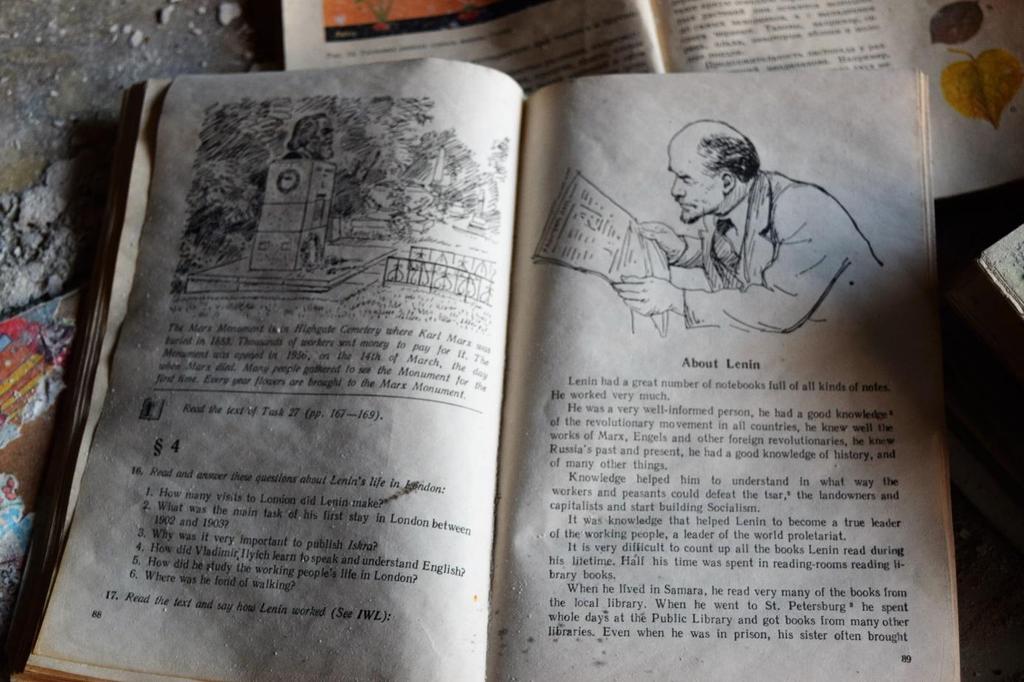 The Marx Monument is in Highgate Cemetery where Karl Marx was
buried in 1883. Thousands of workers sent money to pay for it. The
Monument was opened in 1956, on the 14th of March, the day
when Marx died. Many people gathered to see the Monument for the
first time. Every year flowers are brought to the Marx Monument.
Read the text of Task 27 (pp. 167—169).
§ 4
16. Read and answer these questions about Lenin's life in London:
1. How many visits to London did Lenin make?
2. What was the main task of his first stay in London between
1902 and 1903?
3. Why was it very important to publish Iskra?
4. How did Vladimir Ilyich learn to speak and understand English?
5. How did he study the working people's life in London?
6. Where was he fond of walking?
17. Read the text and say how Lenin worked (See IWL):
88
About Lenin
Lenin had a great number of notebooks full of all kinds of notes.
He worked very much.
He was a very well-informed person, he had a good knowledge
of the revolutionary movement in all countries, he knew well the
works of Marx, Engels and other foreign revolutionaries, he knew
Russia's past and present, he had a good knowledge of history, and
of many other things.
Knowledge helped him to understand in what way the
workers and peasants could defeat the tsar, the landowners and
capitalists and start building Socialism.
It was knowledge that helped Lenin to become a true leader
of the working people, a leader of the world proletariat.
It is very difficult to count up all the books Lenin read during
his lifetime. Half his time was spent in reading-rooms reading li-
brary books.
When he lived in Samara, he read very many of the books from
the local library. When he went to St. Petersburg he spent
whole days at the Public Library and got books from many other
libraries. Even when he was in prison, his sister often brought
89